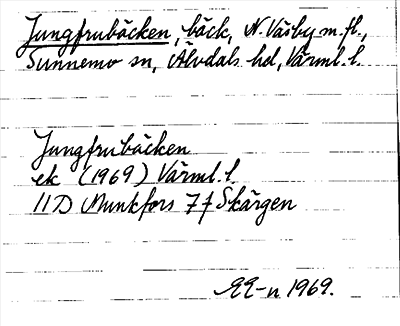 Jungfrubäcken, bäck, N. Väsby m.fl.,
Sunnemo sn, Älvdals hd, Värml. l.
Jungfrubäcken
ek (1969) Värml. l.
11D Munkfors 7f Skärgen
EE-n 1969.